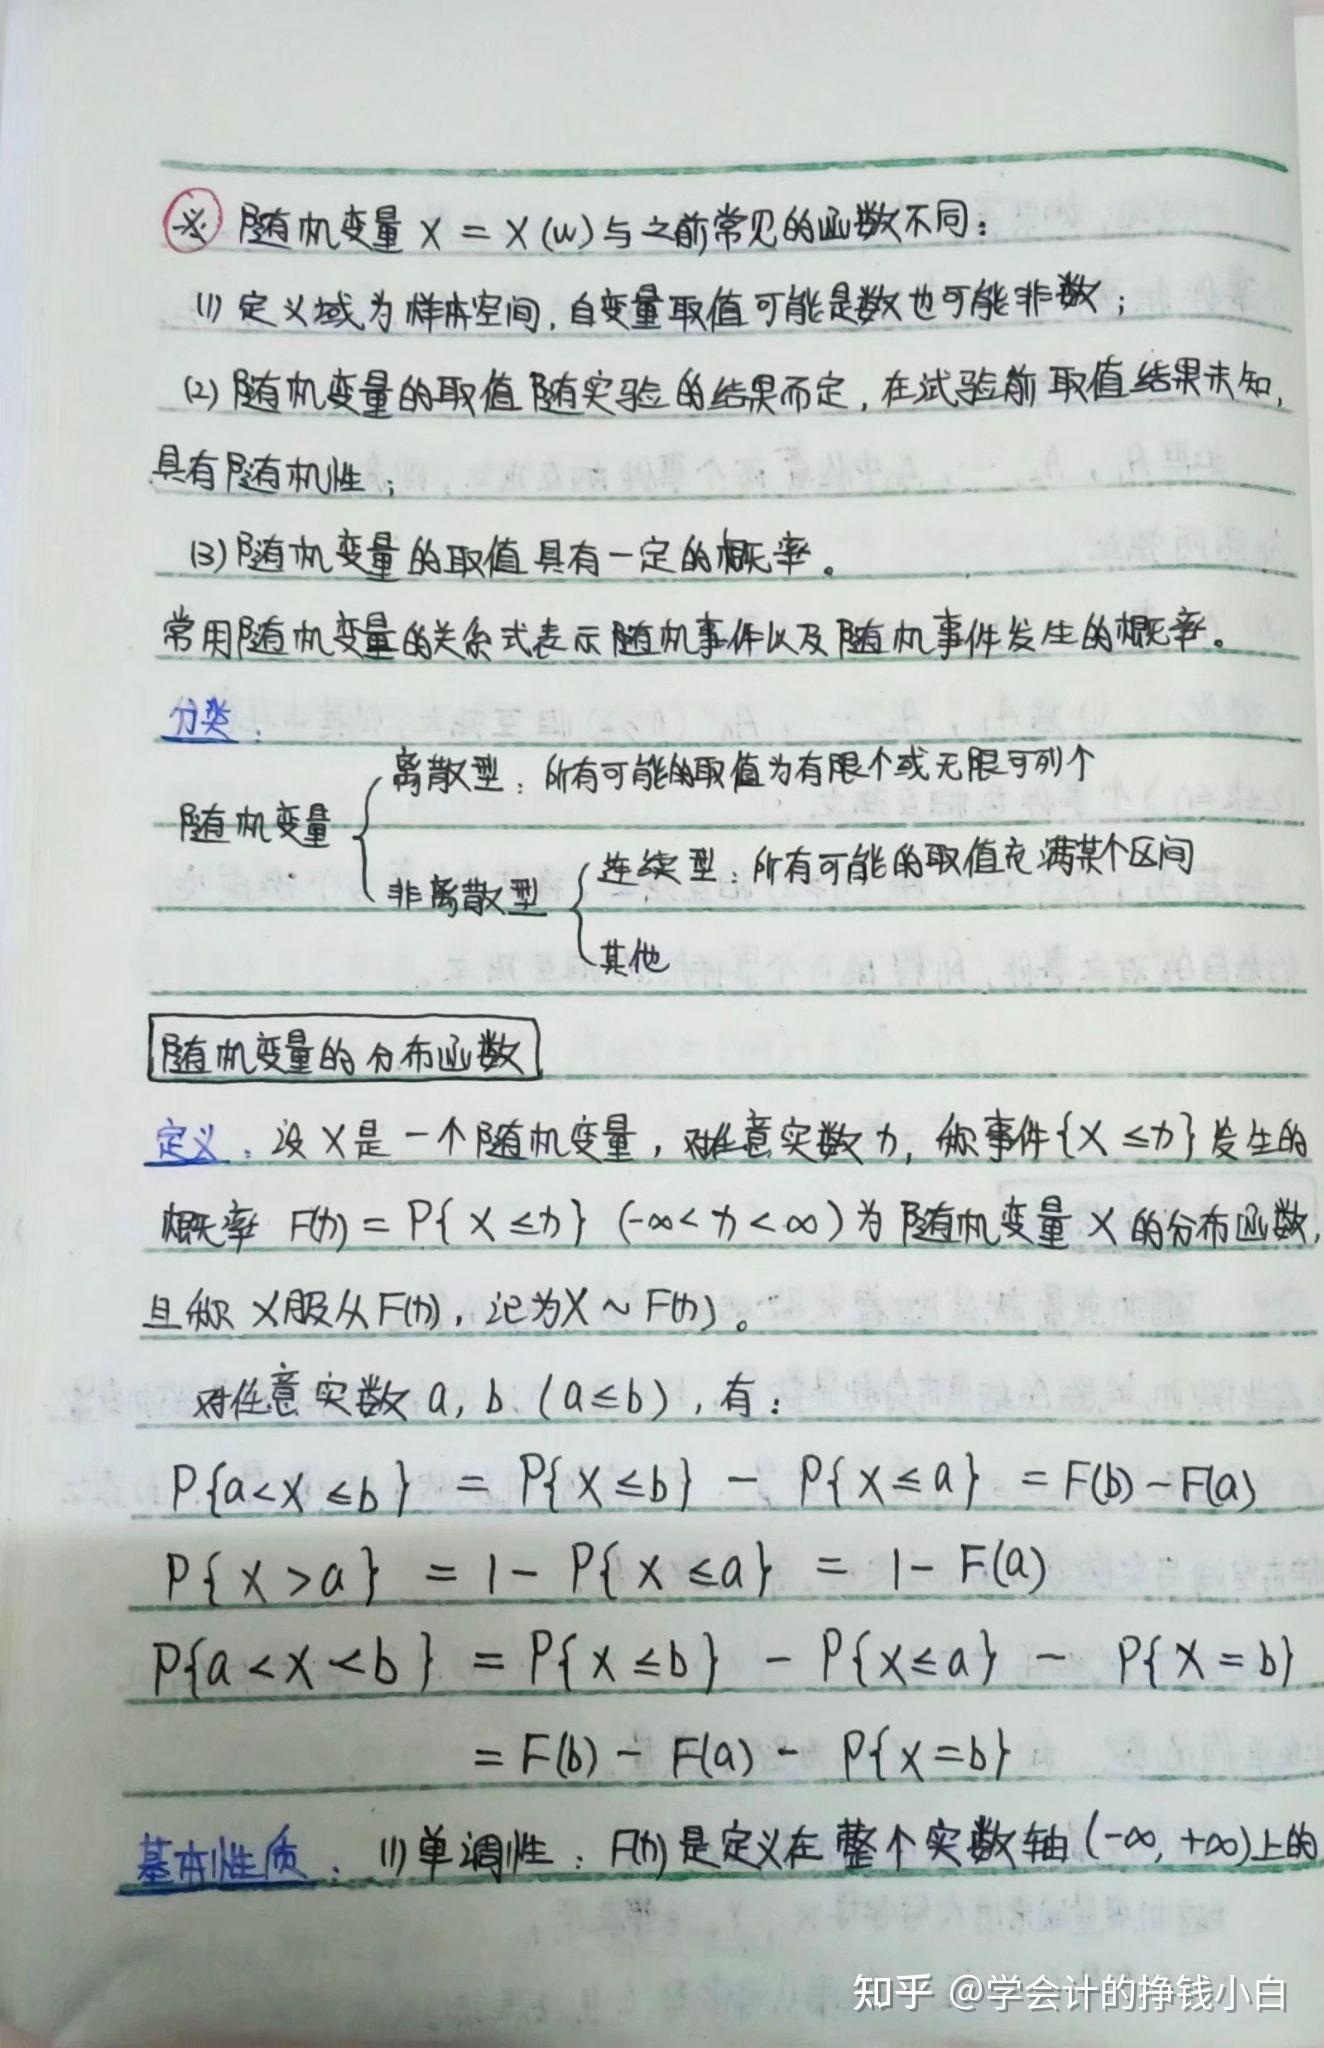 ※ 随机变量 X = X(w) 与之前常见的函数不同：
(1) 定义域为样本空间，自变量取值可能是数也可能非数；
(2) 随机变量的取值随实验的结果而定，在试验前取值结果未知，
具有随机性；
(3) 随机变量的取值具有一定的概率。
常用随机变量的关系式表示随机事件以及随机事件发生的概率。
分类：
离散型：所有可能的取值为有限个或无限可列个
随机变量
连续型：所有可能的取值充满某个区间
非离散型
其他
随机变量的分布函数
定义：设 X 是一个随机变量，对任意实数 x，称事件{X ≤ x} 发生的
概率 F(x) = P{ X ≤ x } (-∞ < x < ∞) 为随机变量 X 的分布函数，
且称 X 服从 F(x)，记为 X ~ F(x)。
对任意实数 a, b (a ≤ b)，有：
P{a < X ≤ b} = P{X ≤ b} - P{X ≤ a} = F(b) - F(a)
P{ X > a } = 1 - P{ X ≤ a } = 1 - F(a)
P{a < X < b } = P{ X ≤ b } - P{X ≤ a} - P{ X = b }
= F(b) - F(a) - P{ X = b }
基本性质：(1) 单调性：F(x) 是定义在整个实数轴 (-∞, +∞) 上的
知乎 @学会计的挣钱小白